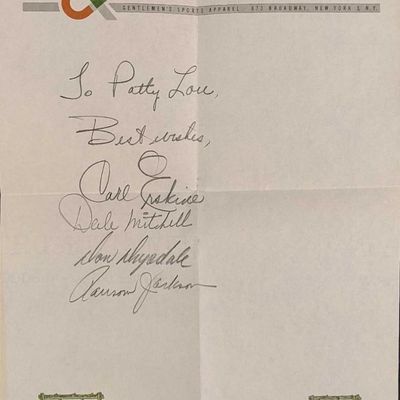 GENTLEMEN'S SPORTS APPAREL · 873 BROADWAY, NEW YORK 3, N.Y.
To Patty Lou,
Best wishes,
Carl Erskine
Dale Mitchell
Don Drysdale
Ransom Jackson